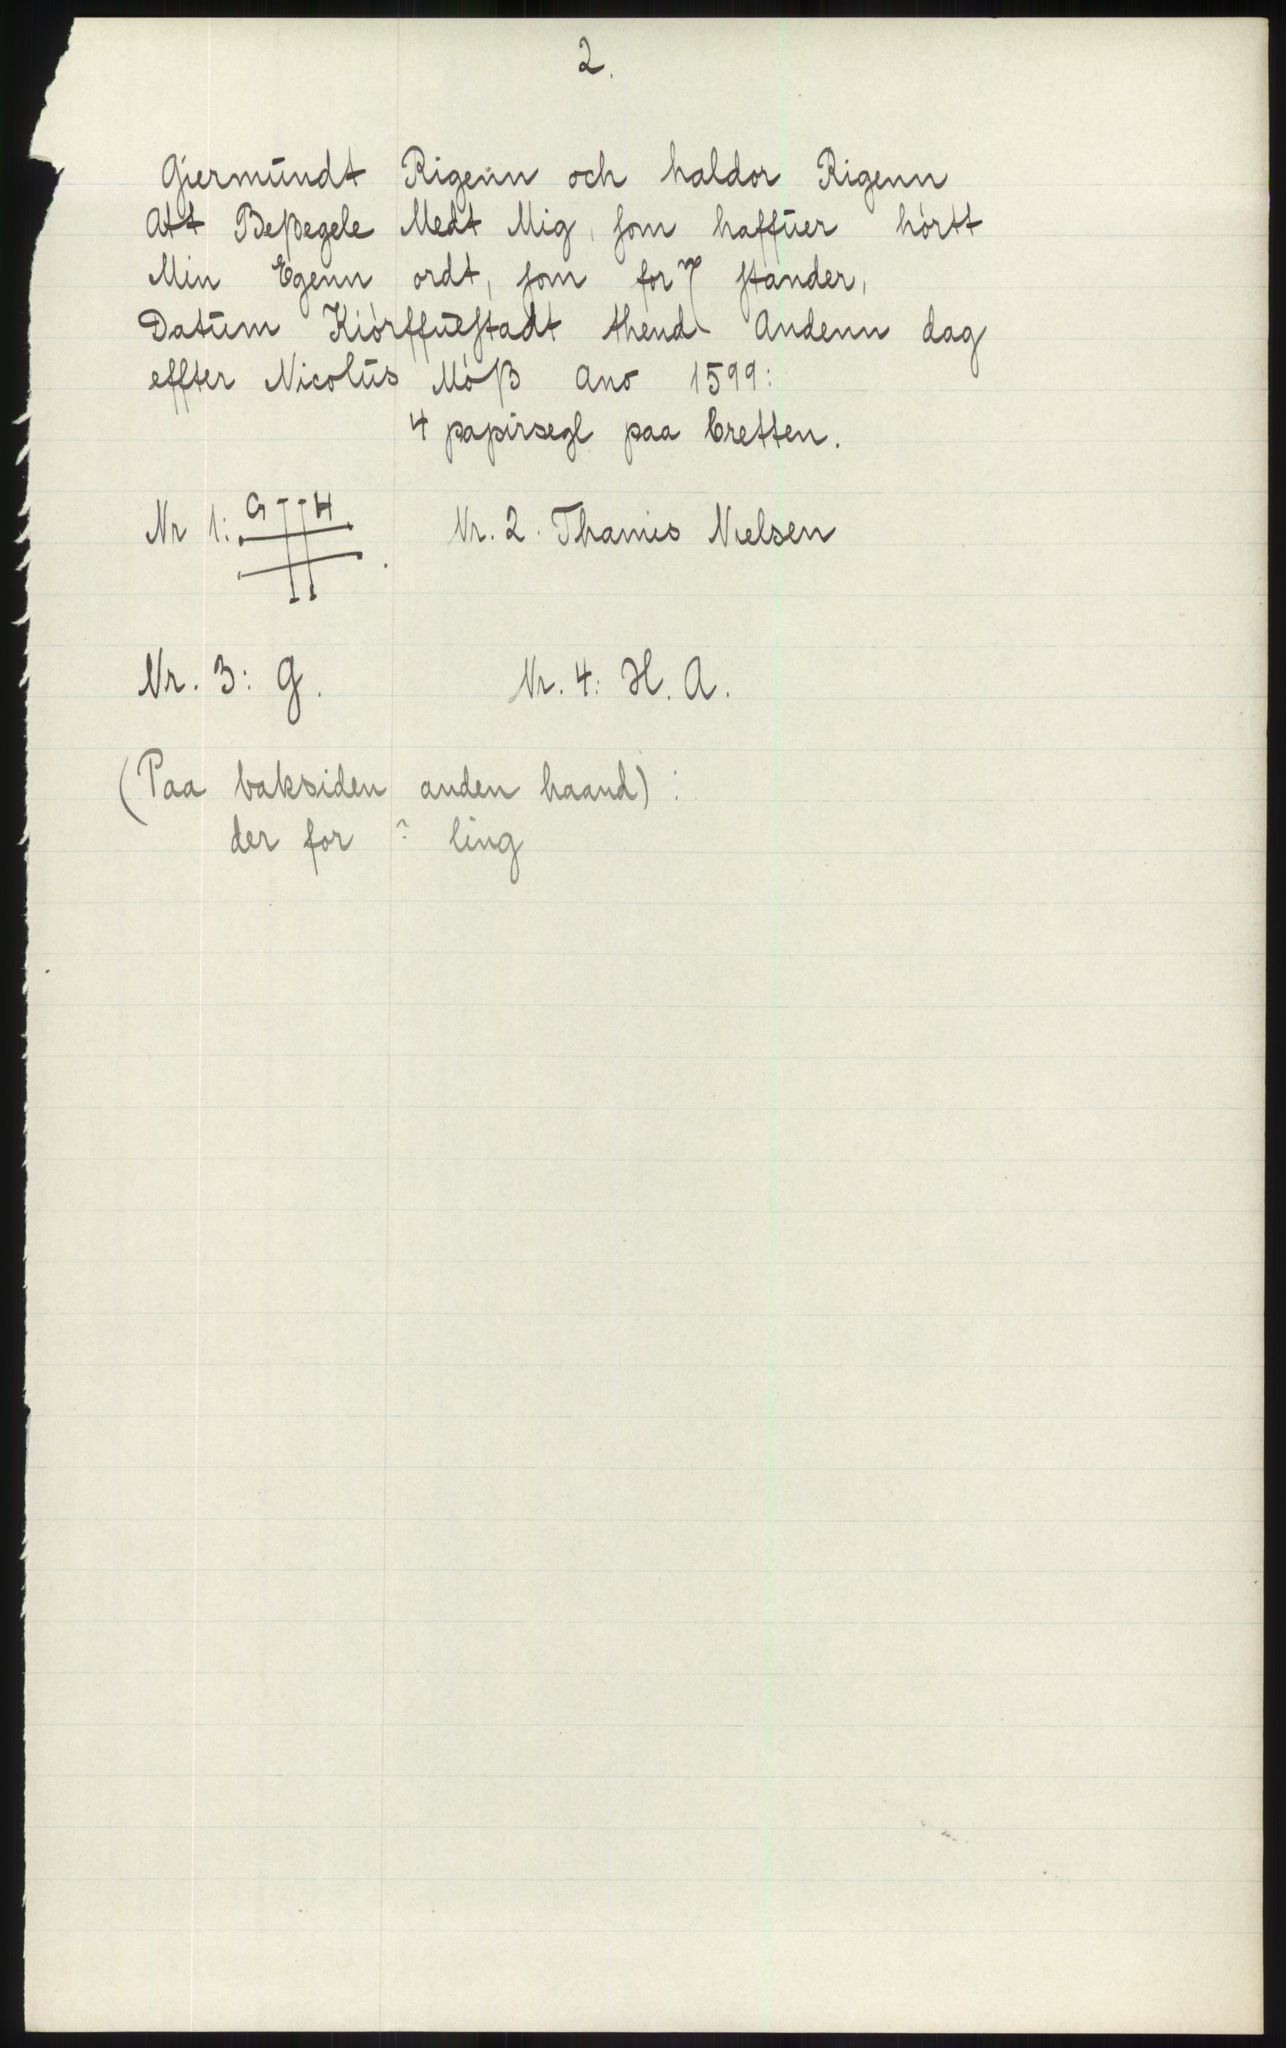 2.
Gjermūndt Rigenn och haldor Rigenn
Att Beßegele Medt Mig, som haffūer hörtt
Min Egenn ordt, som for7 stander,
Datūm Kiörffūestadt thend Andenn dag
effter Nicolūs Möß Ano 1599:
4 papirsegl paa bretten.
Nr 1: G H Nr. 2. Thamis Nielsen
Nr. 3: G. Nr. 4: H. A.
(Paa baksiden anden haand):
der for ? ling